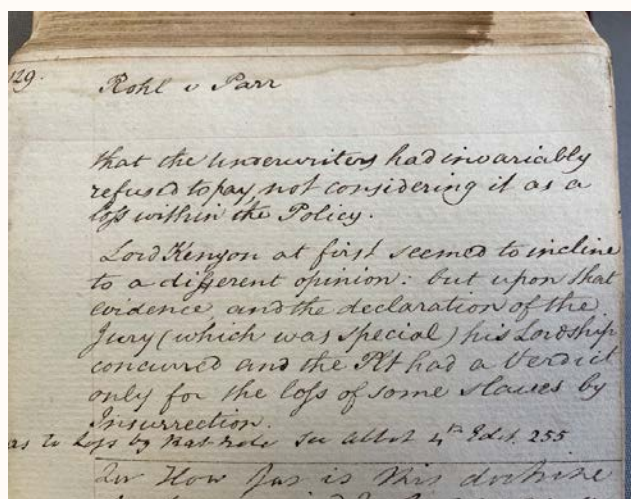 129.
Rohl v Parr
that the Underwriters had invariably
refused to pay, not considering it as a
loss within the Policy.
Lord Kenyon at first seemed to incline
to a different opinion: but upon that
evidence, and the declaration of the
Jury (which was special) his Lordship
concurred and the Plt had a Verdict
only for the loss of some slaves by
Insurrection.
as to Loss by Rat hole See Abbot 4th Edit. 255
How far is this doctrine